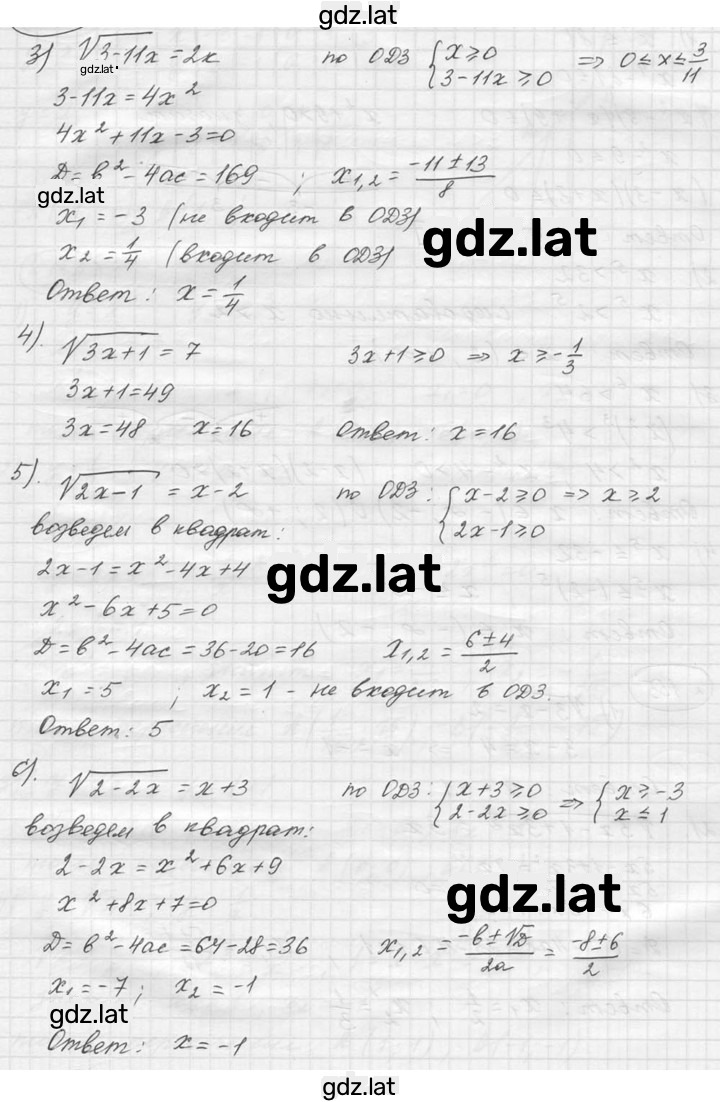 gdz.lat
3) √3-11x = 2x по ОДЗ { x ≥ 0 3-11x ≥ 0 => 0 ≤ x ≤ 3/11
gdz.lat
3-11x = 4x²
4x² + 11x - 3 = 0
D = b² - 4ac = 169 ; x₁,₂ = -11 ± 13 / 8
gdz.lat
x₁ = -3 (не входит в ОДЗ)
x₂ = 1/4 (входит в ОДЗ)
gdz.lat
Ответ: x = 1/4
4). √3x+1 = 7 3x+1 ≥ 0 => x ≥ -1/3
3x+1 = 49
3x = 48 x = 16 Ответ: x = 16
5). √2x-1 = x-2 по ОДЗ: { x-2 ≥ 0 => x ≥ 2 2x-1 ≥ 0
возведем в квадрат:
2x-1 = x² - 4x + 4
gdz.lat
x² - 6x + 5 = 0
D = b² - 4ac = 36-20 = 16 x₁,₂ = 6 ± 4 / 2
x₁ = 5 ; x₂ = 1 - не входит в ОДЗ.
Ответ: 5
6). √2-2x = x+3 по ОДЗ: { x+3 ≥ 0 2-2x ≥ 0 => { x ≥ -3 x ≤ 1
возведем в квадрат:
2-2x = x² + 6x + 9
gdz.lat
x² + 8x + 7 = 0
D = b² - 4ac = 64-28 = 36 x₁,₂ = -b ± √D / 2a = -8 ± 6 / 2
x₁ = -7; x₂ = -1
gdz.lat
Ответ: x = -1
gdz.lat